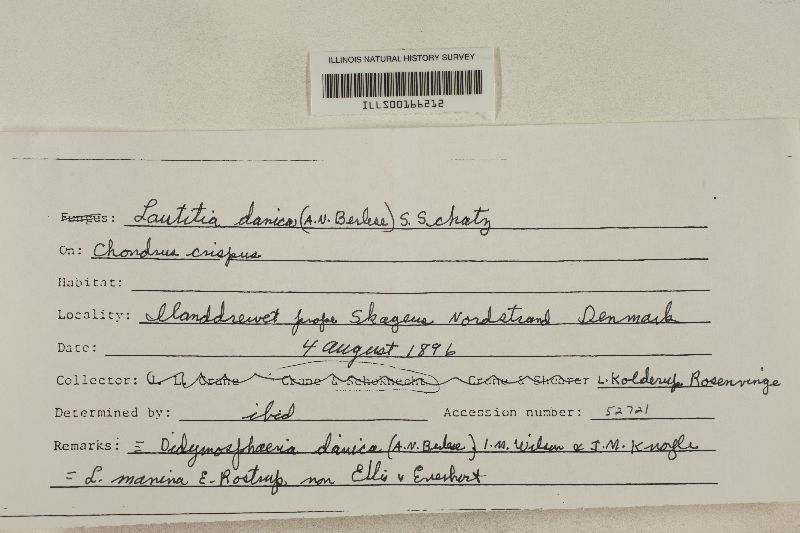 ILLINOIS NATURAL HISTORY SURVEY
ILLS00166212
Fungus: Lautitia danica (A.N. Berlese) S. Schatz
On: Chondrus crispus
Habitat:
Locality: prope Skagens Nordstrand Denmark
Date: 4 August 1896
Collector: J. L. Crane Crane & Schoknecht Crane & Shearer L. Kolderup Rosenvinge
Determined by: ibid Accession number: 52721
Remarks: = Didymosphaeria danica (A.N. Berlese) I.M. Wilson & J.M. Knoyle
= L. marina E. Rostrup non Ellis & Everhart